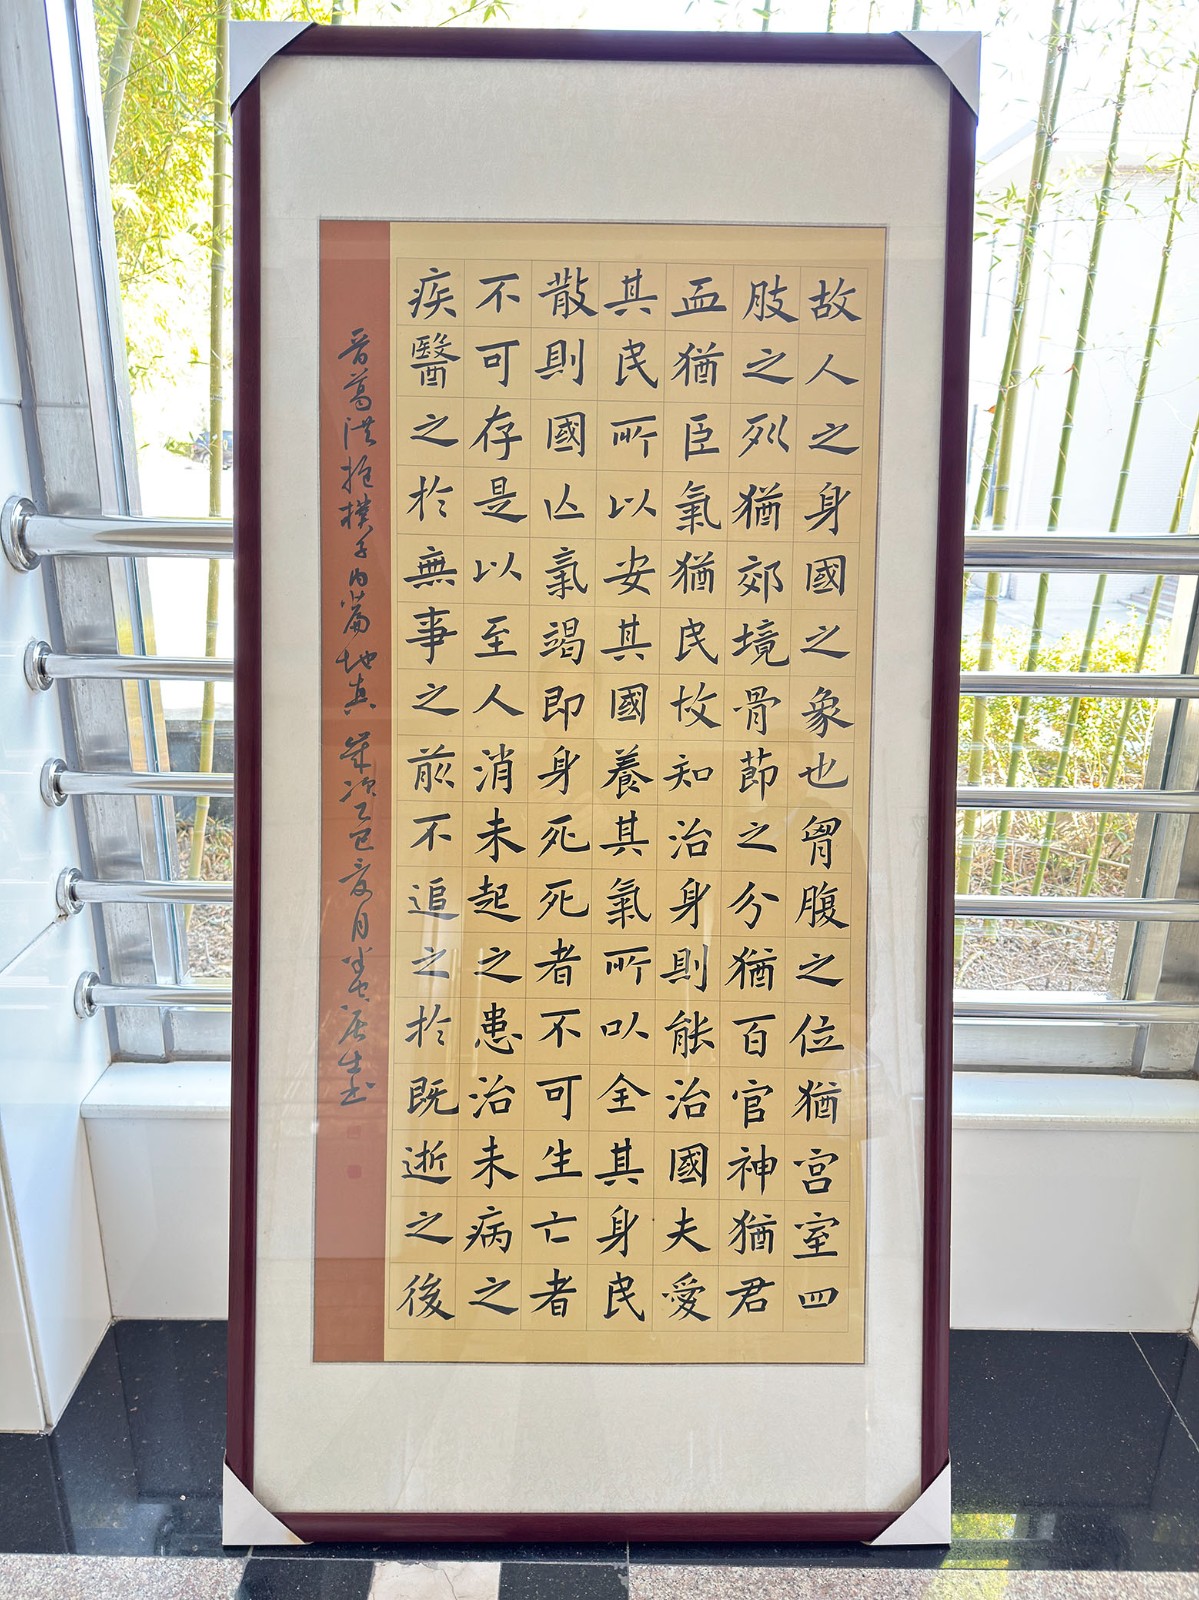 故人之身國之象也胷腹之位猶宮室四
肢之列猶郊境骨節之分猶百官神猶君
血猶臣氣猶民故知治身則能治國夫愛
其民所以安其國養其氣所以全其身民
散則國亡氣竭即身死死者不可生亡者
不可存是以至人消未起之患治未病之
疾醫之於無事之前不追之於既逝之後
晋葛洪抱樸子内篇地真 歲次乙巳夏月